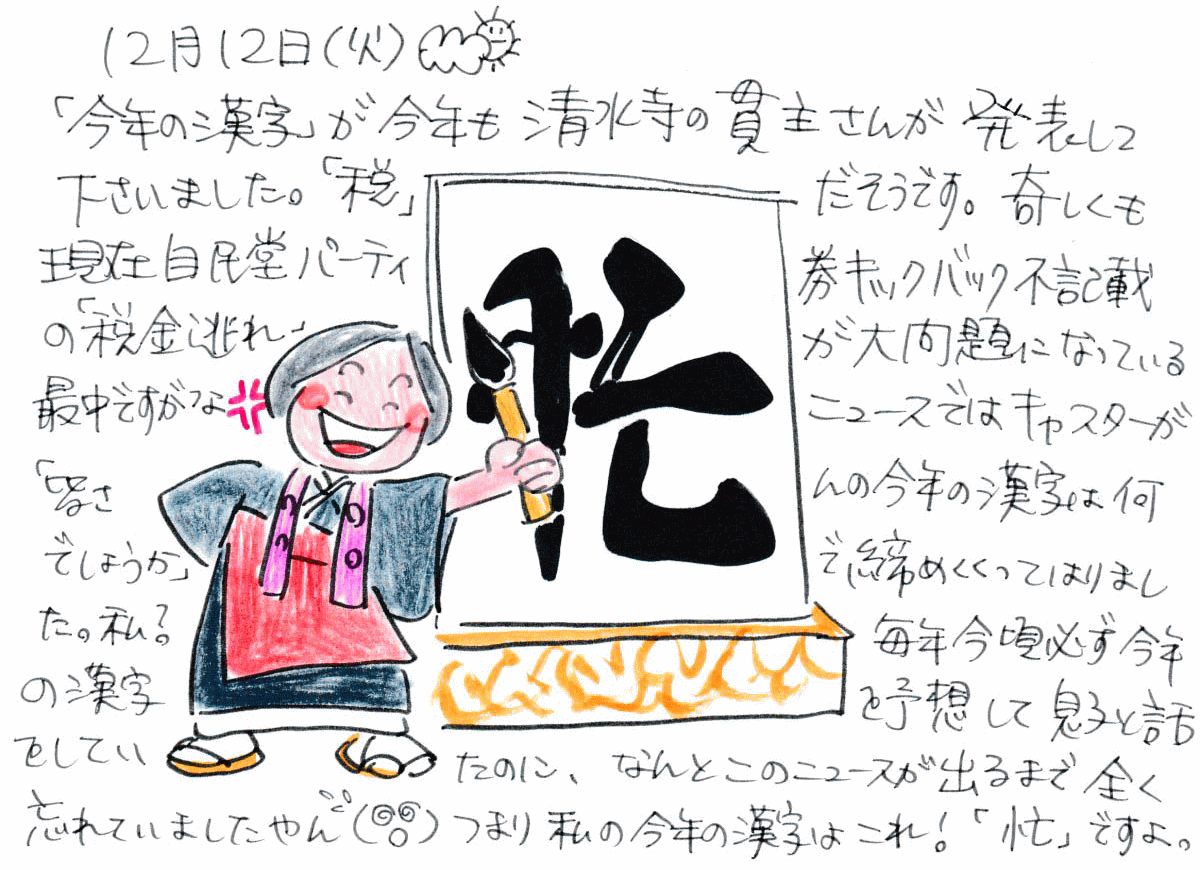 12月12日(火)
「今年の漢字」が今年も清水寺の貫主さんが発表して
下さいました。「税」だそうです。奇しくも
現在自民堂パーティ券キックバック不記載
の「税金逃れ」が大問題になっている
最中ですがなニュースではキャスターが
「皆さんの今年の漢字は何
でしょうか」で締めくくってはりまし
た。私?毎年今頃必ず今年
の漢字を予想して息子と話
をしていたのに、なんとこのニュースが出るまで全く
忘れていましたやん(◎o◎)つまり私の今年の漢字はこれ!「忙」ですよ。
忙